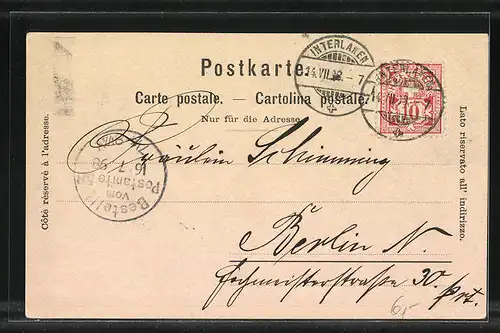 INTERLAKEN
14.VII.98. – 7
INTERLAKEN
10
Postkarte.
Carte postale. — Cartolina postale.
Nur für die Adresse.
Côté réservé à l'adresse.
Lato riservato all' indirizzo.
Fräulein Schimming
Bestellt
vom
Postamte
16/7 98
Berlin N.
Fehmarnerstraße 20. prt.
6,-